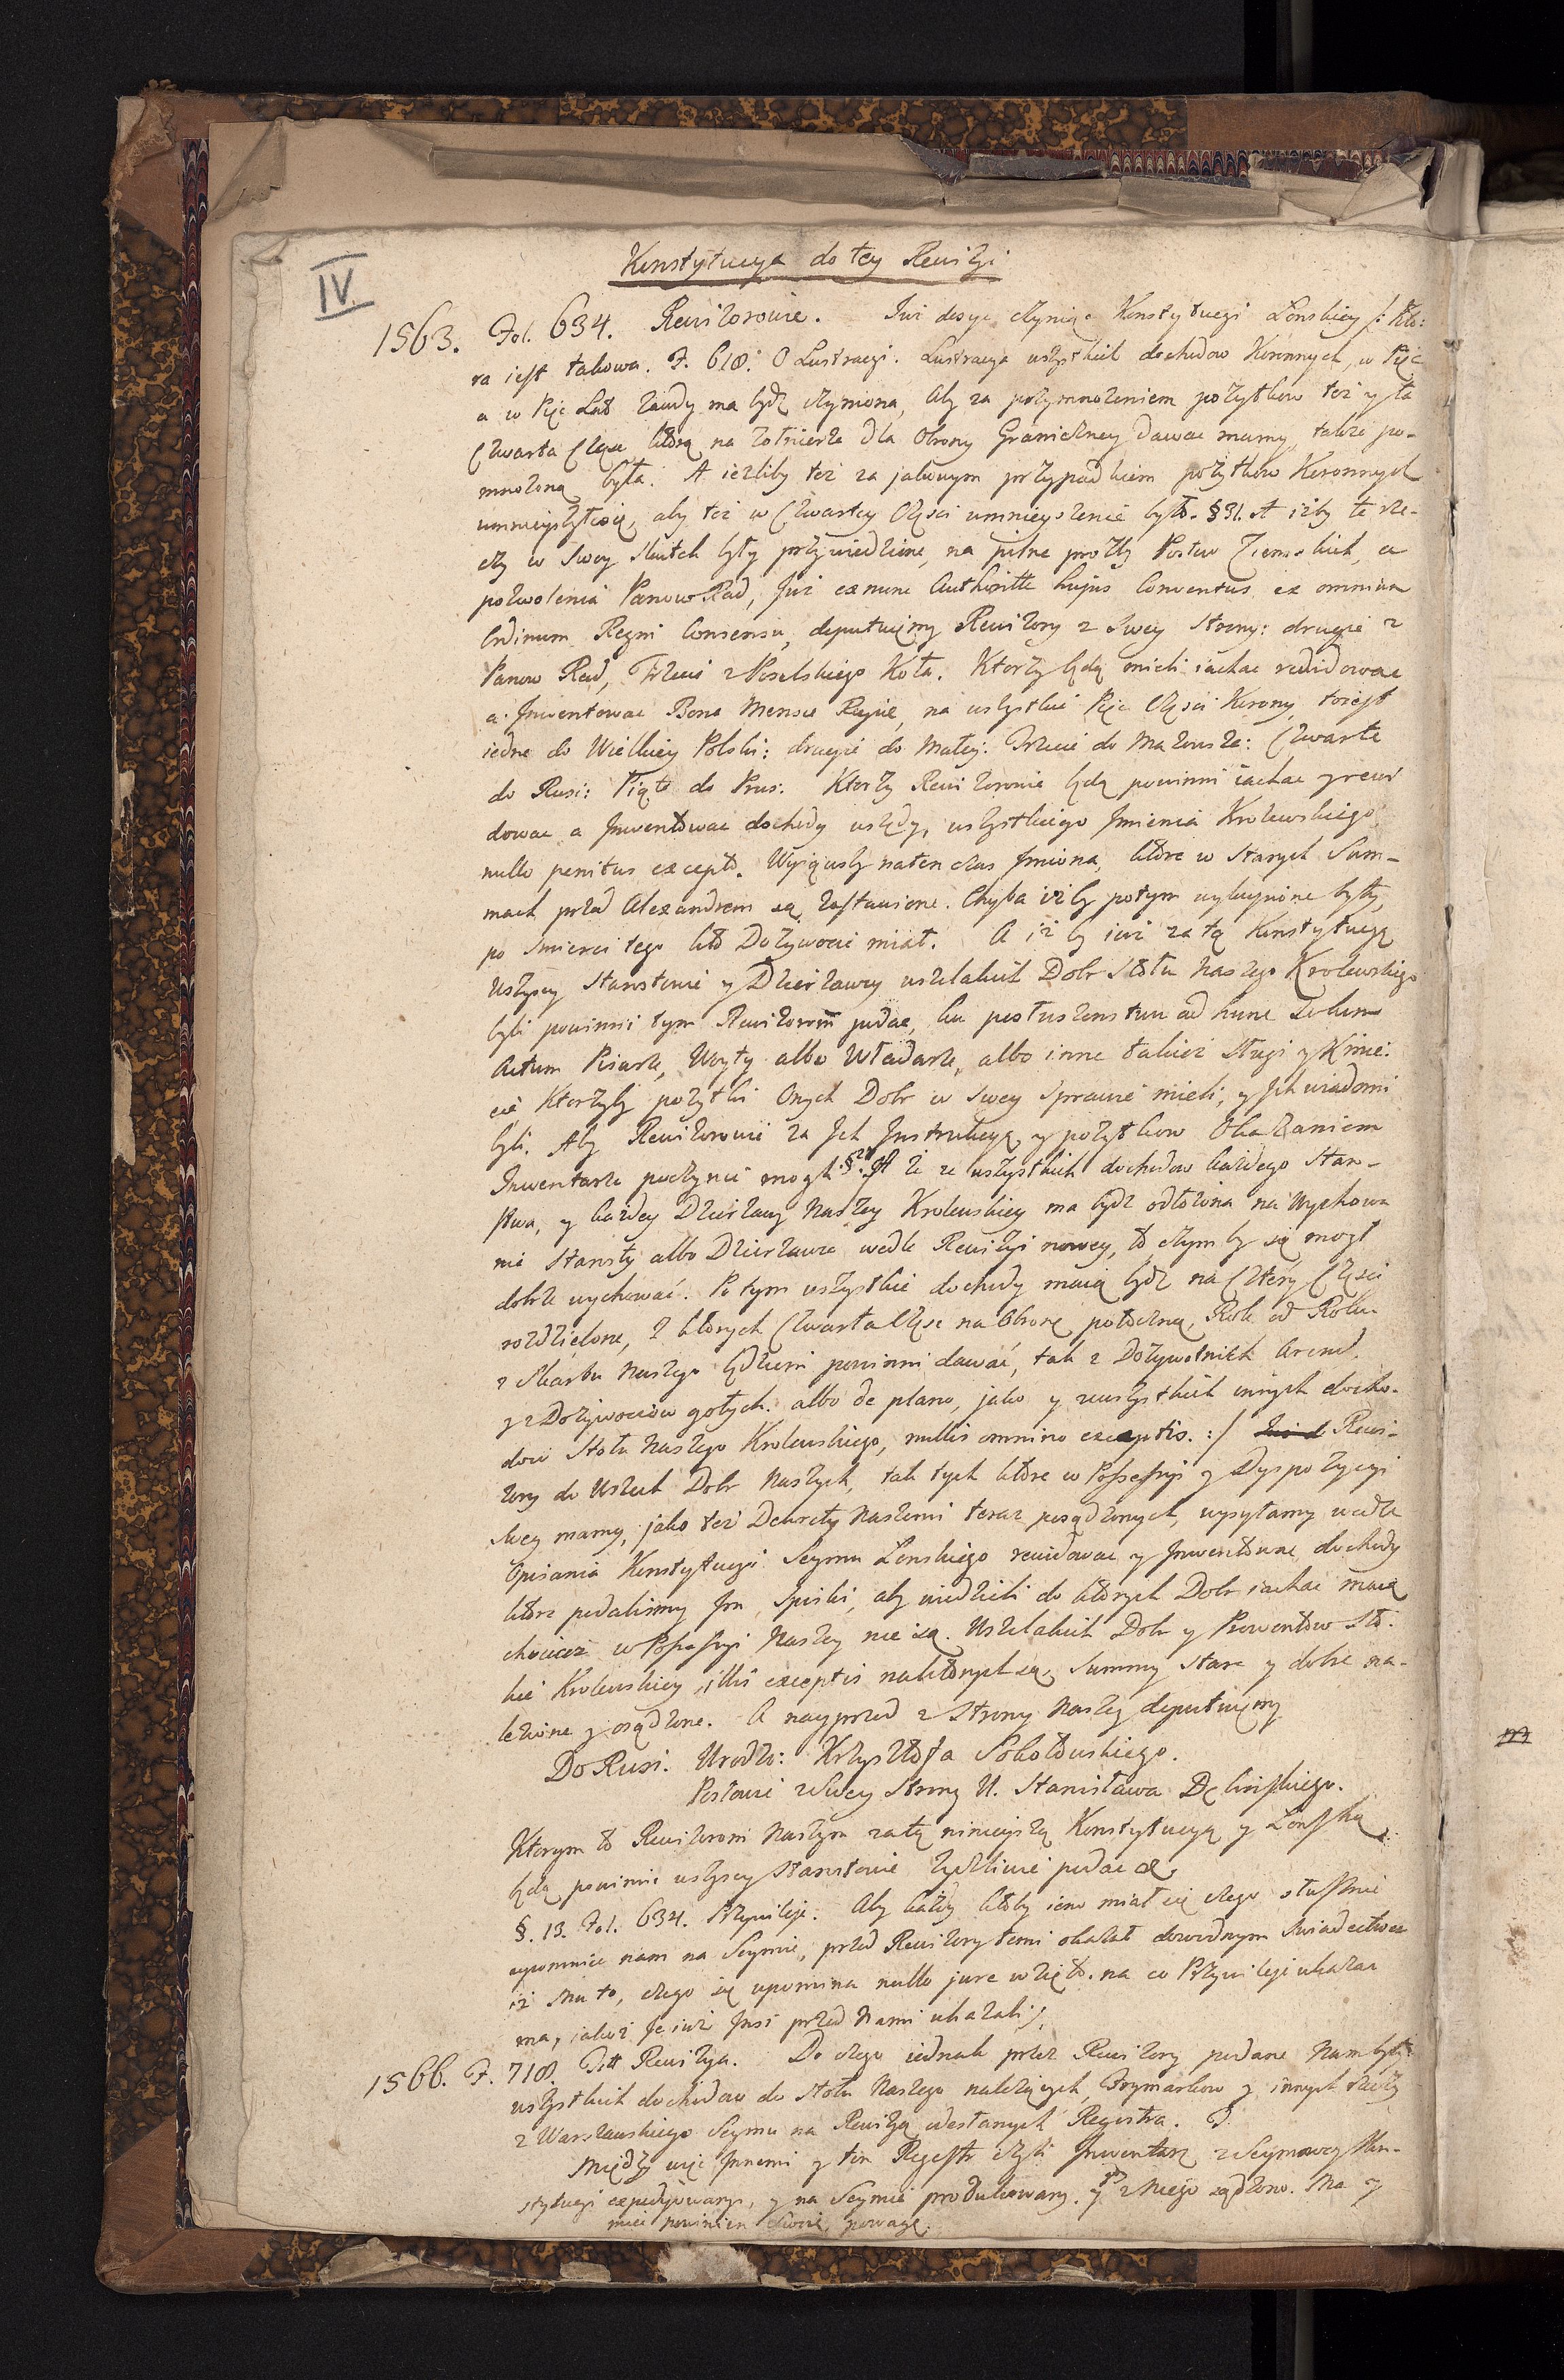 IV.
Konstytucya do tey Rewizyi
1563. Fol. 634. Rewizorowie. Iuż dosyc czyniąc Konstytucyi Łonskiey /: kto:
ra iest takowa. F. 618. O Lustracyi. Lustracya wszystkich dochodow Koronnych, w Pięć
a w Pięc Lat zawdy ma bydz czyniona, Aby za przymnożeniem pożytkow też y ta
Czwarta Częsc ktorą na żołnierza dla Obrony Graniczney dawac mamy, także po-
mnożoną była. A iezliby też za jakowym przypadkiem pożytkow Koronnych
umnieyszyłosię, aby też w Czwartey Części umnieyszenie było. § 31. A iżby te rze-
czy w swey skutek były przywiedzione, na pilne prozby Posłow Ziemskich, a
pozwolenia Panow Rad, Już ex nunc Authoritte hujus Conventus ex omnium
Ordinum Regni Consensu, deputuiemy Rewizory z Swey Strony: drugie z
Panow Rad, Trzecie z Poselskiego Koła. Ktorzy będą mieli iachac rewidowac
a Inwentowac Bona Mensæ Regiæ, na wszystkie Pięc Części Korony, toiest
iedne do Wielkiey Polski: drugie do Małey: Trzecie do Mazowsza: Czwarte
do Rusi: Piąte do Prus. Ktorzy Rewizorowie będą powinni iachac y rewi
dowac a Inwentowac dochody wszędy, wszystkiego Imienia Krolewskiego,
nullo penitus excepto. Wyiąwszy naten czas Imiona, ktore w Starych Sum-
mach przed Alexandrem są zastawione. Chyba iżby potym wykupione były,
po Smierci tego kto Dożywocie miał. A iż by iuż za tą Konstytucyą
wszyscy Starostowie y Dzierżawcy wszelakich Dobr Stołu Naszego Krolewskiego
byli powinni tym Rewizorom podac, ku posłuszenstwu ad hunc Solum
Actum Pisarze, Woyty albo Włodarze, albo inne takież Sługi y Kmie:
cie Ktorzyby pożytki Onych Dobr w swey Sprawie mieli, y Ich wiadomi
byli. Aby Rewizorowie za Ich Instrukcyą, y pożytkow Okazaniem
Inwentarze poczynic mogli. § 2 A iż ze wszystkich dochodow każdego Staro-
stwa, y każdey Dzierżawy Naszey Krolewskiey ma bydz odłożona na Wychowa
nie Starosty albo Dzierżawce wedle Rewizyi nowey, to czym by się mogł
dobrze wychować. Potym wszystkie dochody maią bydz na Cztery Części
rozdzielone, z ktorych Czwarta Częsc na Obronę potoczną, Rok od Roku
z Skarbu Naszego będziem powinni dawać, tak z Dożywotnich Arend,
y z Dożywociow gołych. albo de plano, jako y zewszystkich innych docho-
dow Stołu Naszego Krolewskiego, nullis omnino exceptis. :/ Rewi-
zory do Wszech Dobr Naszych, tak tych ktore w Possessyi y Dyspozycyi
swey mamy, jako też Dekrety Naszemi teraz posądzonych, wysyłamy wedle
Opisania Konstytucyi Seymu Łonskiego rewidowac y Inwentowac dochody
ktore podalismy Im Spiski, aby wiedzieli do ktorych Dobr iachac maią
chociaż w Possessyi Naszey nie są. Wszelakich Dobr y Prowentow Sto-
ku Krolewskiey, illis exceptis naktorych są Summy Stare y dobrze na-
leżione y osądzone. A nayprzod z Strony Naszey deputuiemy
Do Rusi. Urodzo: Krzysztofa Sokołowskiego.
Posłowie z Swey Strony U. Stanisława Dębinskiego.
Ktorym to Rewizorom Naszym za tą ninieyszą Konstytucyą y Łonską,
będą powinni wszyscy Starostowie życzliwie podac &.
§. 13. Fol. 634. Przywileje. Aby każdy ktoby ieno miał się czego słusznie
upomniec nam na Seymie, przed Rewizory temi okazał dowodnym Swiadectwem
iż Mu to, czego się upomina nullo jure wzięto. na co Przywileje ukazac
ma, iakoż Je iuż Insi przed Nami ukazali.
1566. F. 718. Titt Rewizya. Do czego iednak przez Rewizory podane Nam były
wszystkich dochodow do Stołu Naszego należących, Frymarkow y innych rzeczy
z Warszawskiego Seymu na Rewizyą wesłanych Regestra. &.
Między więc Innemi y ten Regestr czyli Inwentarz z Seymowey Kon-
stytucyi expedyowany, y na Seymie produkowany. y z Niego sądzono. Ma y
miec powinien Swoię powagę.